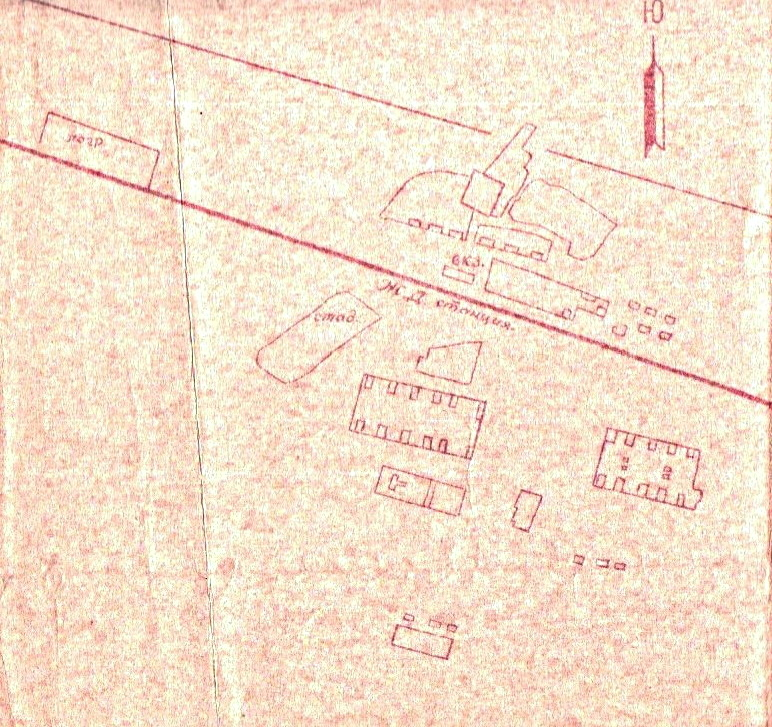 Ю
погр.
вкз.
Ж.Д. станция.
стад.